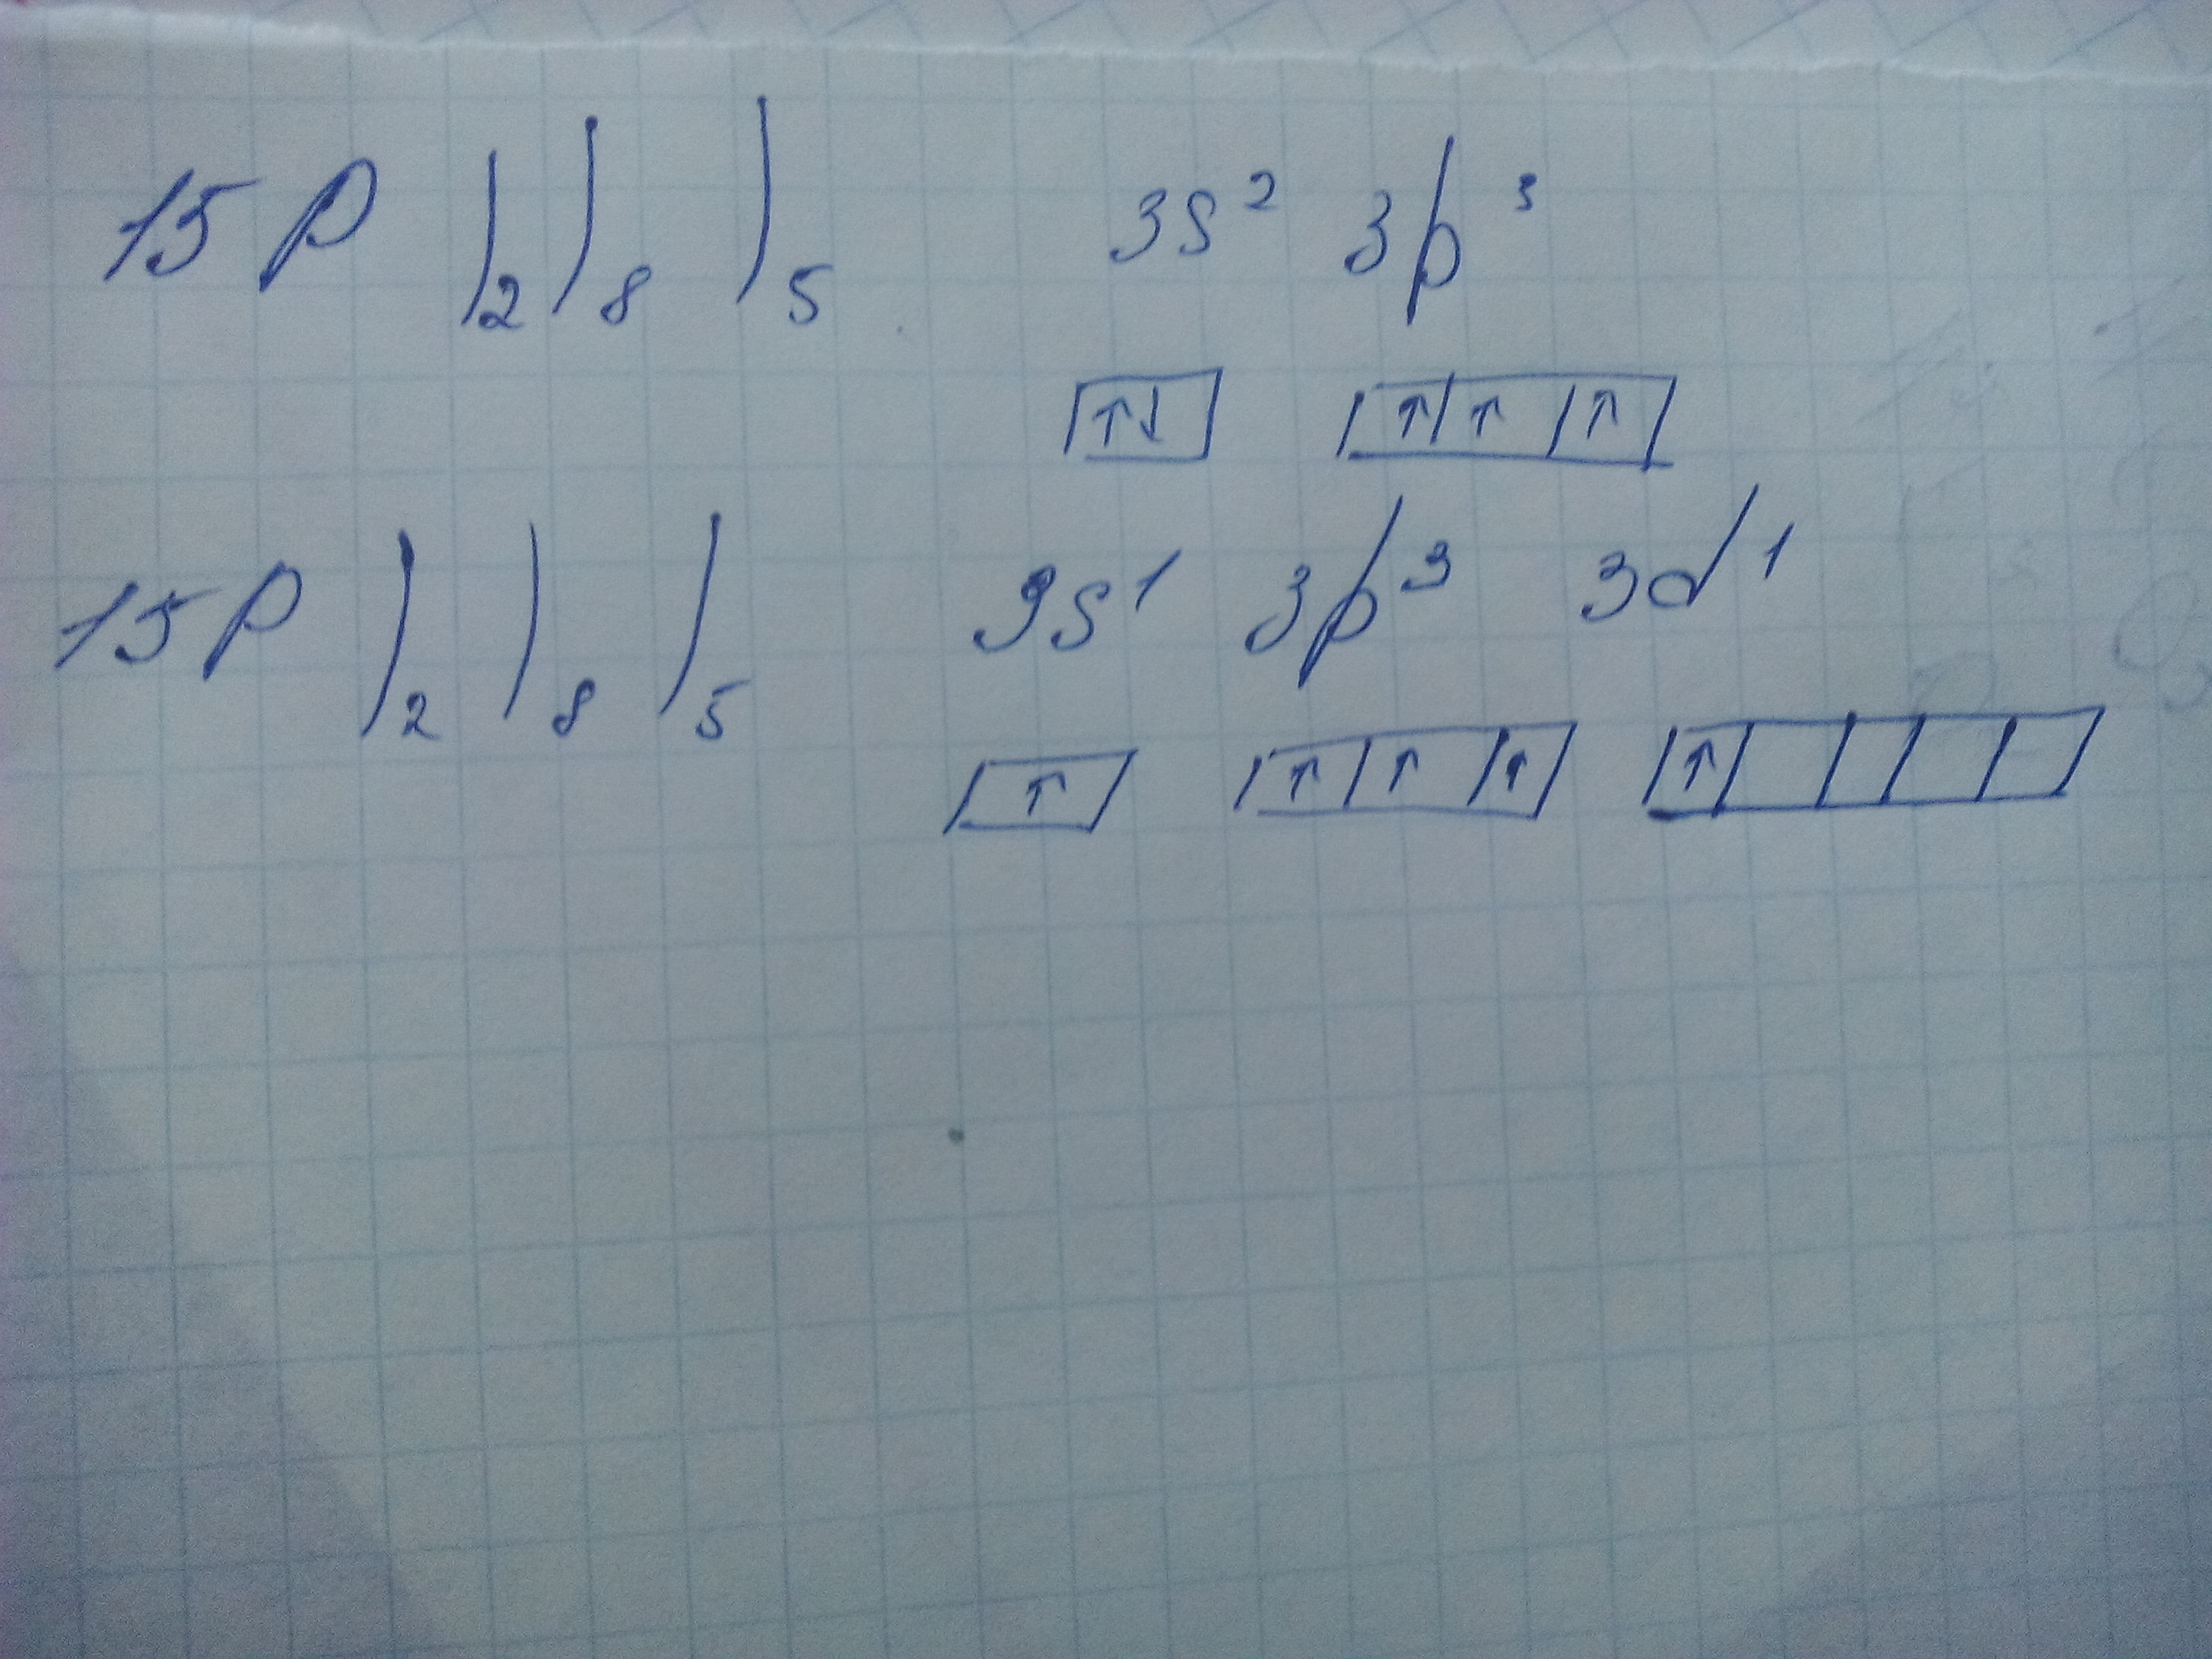 15 P )2 )8 )5 3s² 3p³
↑↓ ↑ ↑ ↑
15 P )2 )8 )5 3s¹ 3p³ 3d¹
↑ ↑ ↑ ↑ ↑